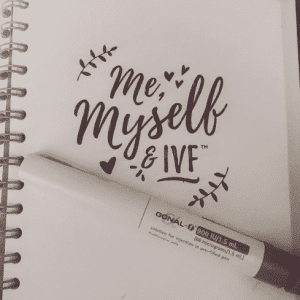 Me,
Myself
& IVF™
GONAL-f
900 IU/1.5 mL